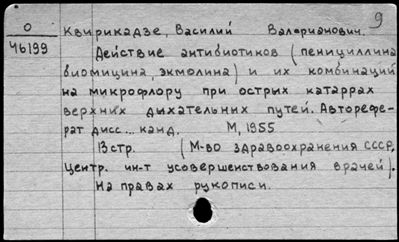 9
О
46199
Квирикадзе, Василий Валерианович.
Действие антибиотиков (пенициллина
биомицина, экмолина) и их комбинаций
на микрофлору при острых катаррах
верхних дыхательных путей. Авторефе-
рат дисс... канд. М, 1955
13 стр. (М-во здравоохранения СССР,
Центр. ин-т усовершенствования врачей).
На правах рукописи.